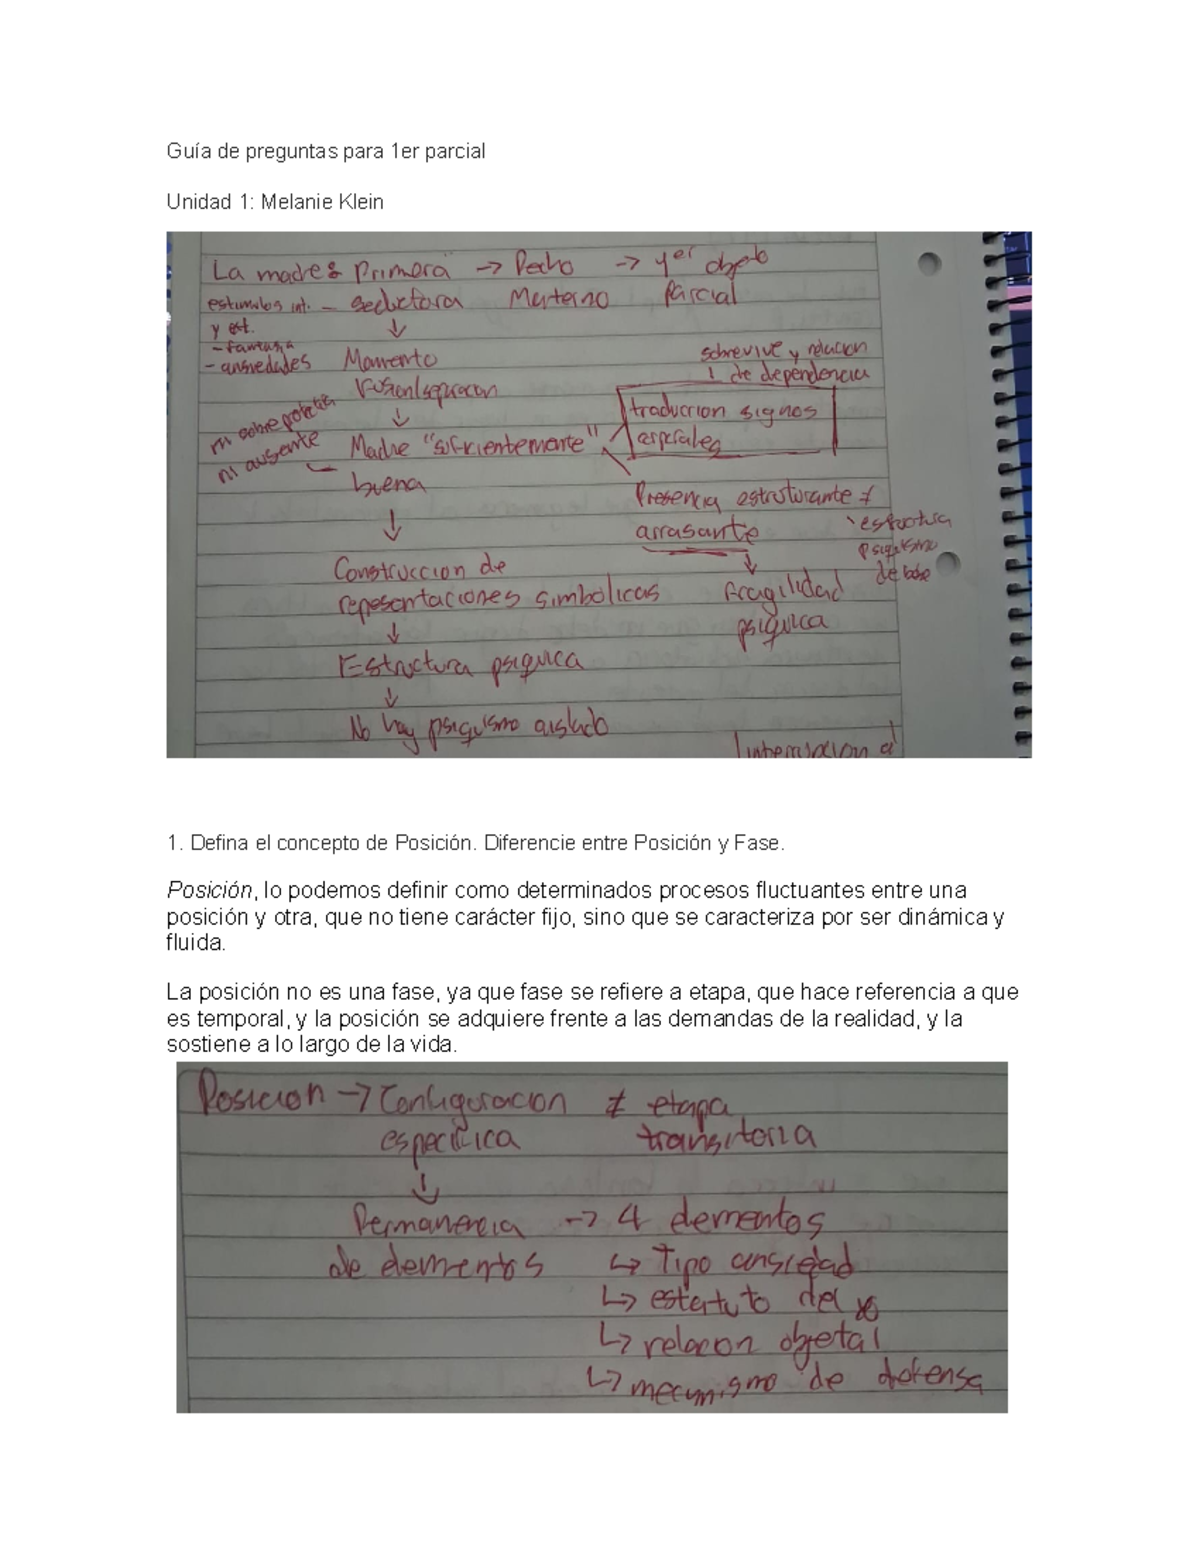 Guía de preguntas para 1er parcial
Unidad 1: Melanie Klein
La madre: Primera -> Pecho -> 1er objeto
estimulos int. - seductora Materno Parcial
y ext.
- fantasia
- ansiedades
Momento
fusion/separacion
sobrevive y relacion
de dependencia
ni sobreprotectora
ni ausente
Madre "suficientemente"
buena
traduccion signos
especiales
Presencia estructurante ≠
arrasante
estructura
psiquismo
de base
Construccion de
representaciones simbolicas
fragilidad
psiquica
Estructura psiquica
No hay psiquismo aislado
1. Defina el concepto de Posición. Diferencie entre Posición y Fase.
Posición, lo podemos definir como determinados procesos fluctuantes entre una
posición y otra, que no tiene carácter fijo, sino que se caracteriza por ser dinámica y
fluida.
La posición no es una fase, ya que fase se refiere a etapa, que hace referencia a que
es temporal, y la posición se adquiere frente a las demandas de la realidad, y la
sostiene a lo largo de la vida.
Posicion -> Configuracion ≠ etapa
especifica transitoria
Permanencia -> 4 elementos
de elementos ↳ Tipo ansiedad
↳ estatuto del
↳ relacion objetal
↳ mecanismo de defensa